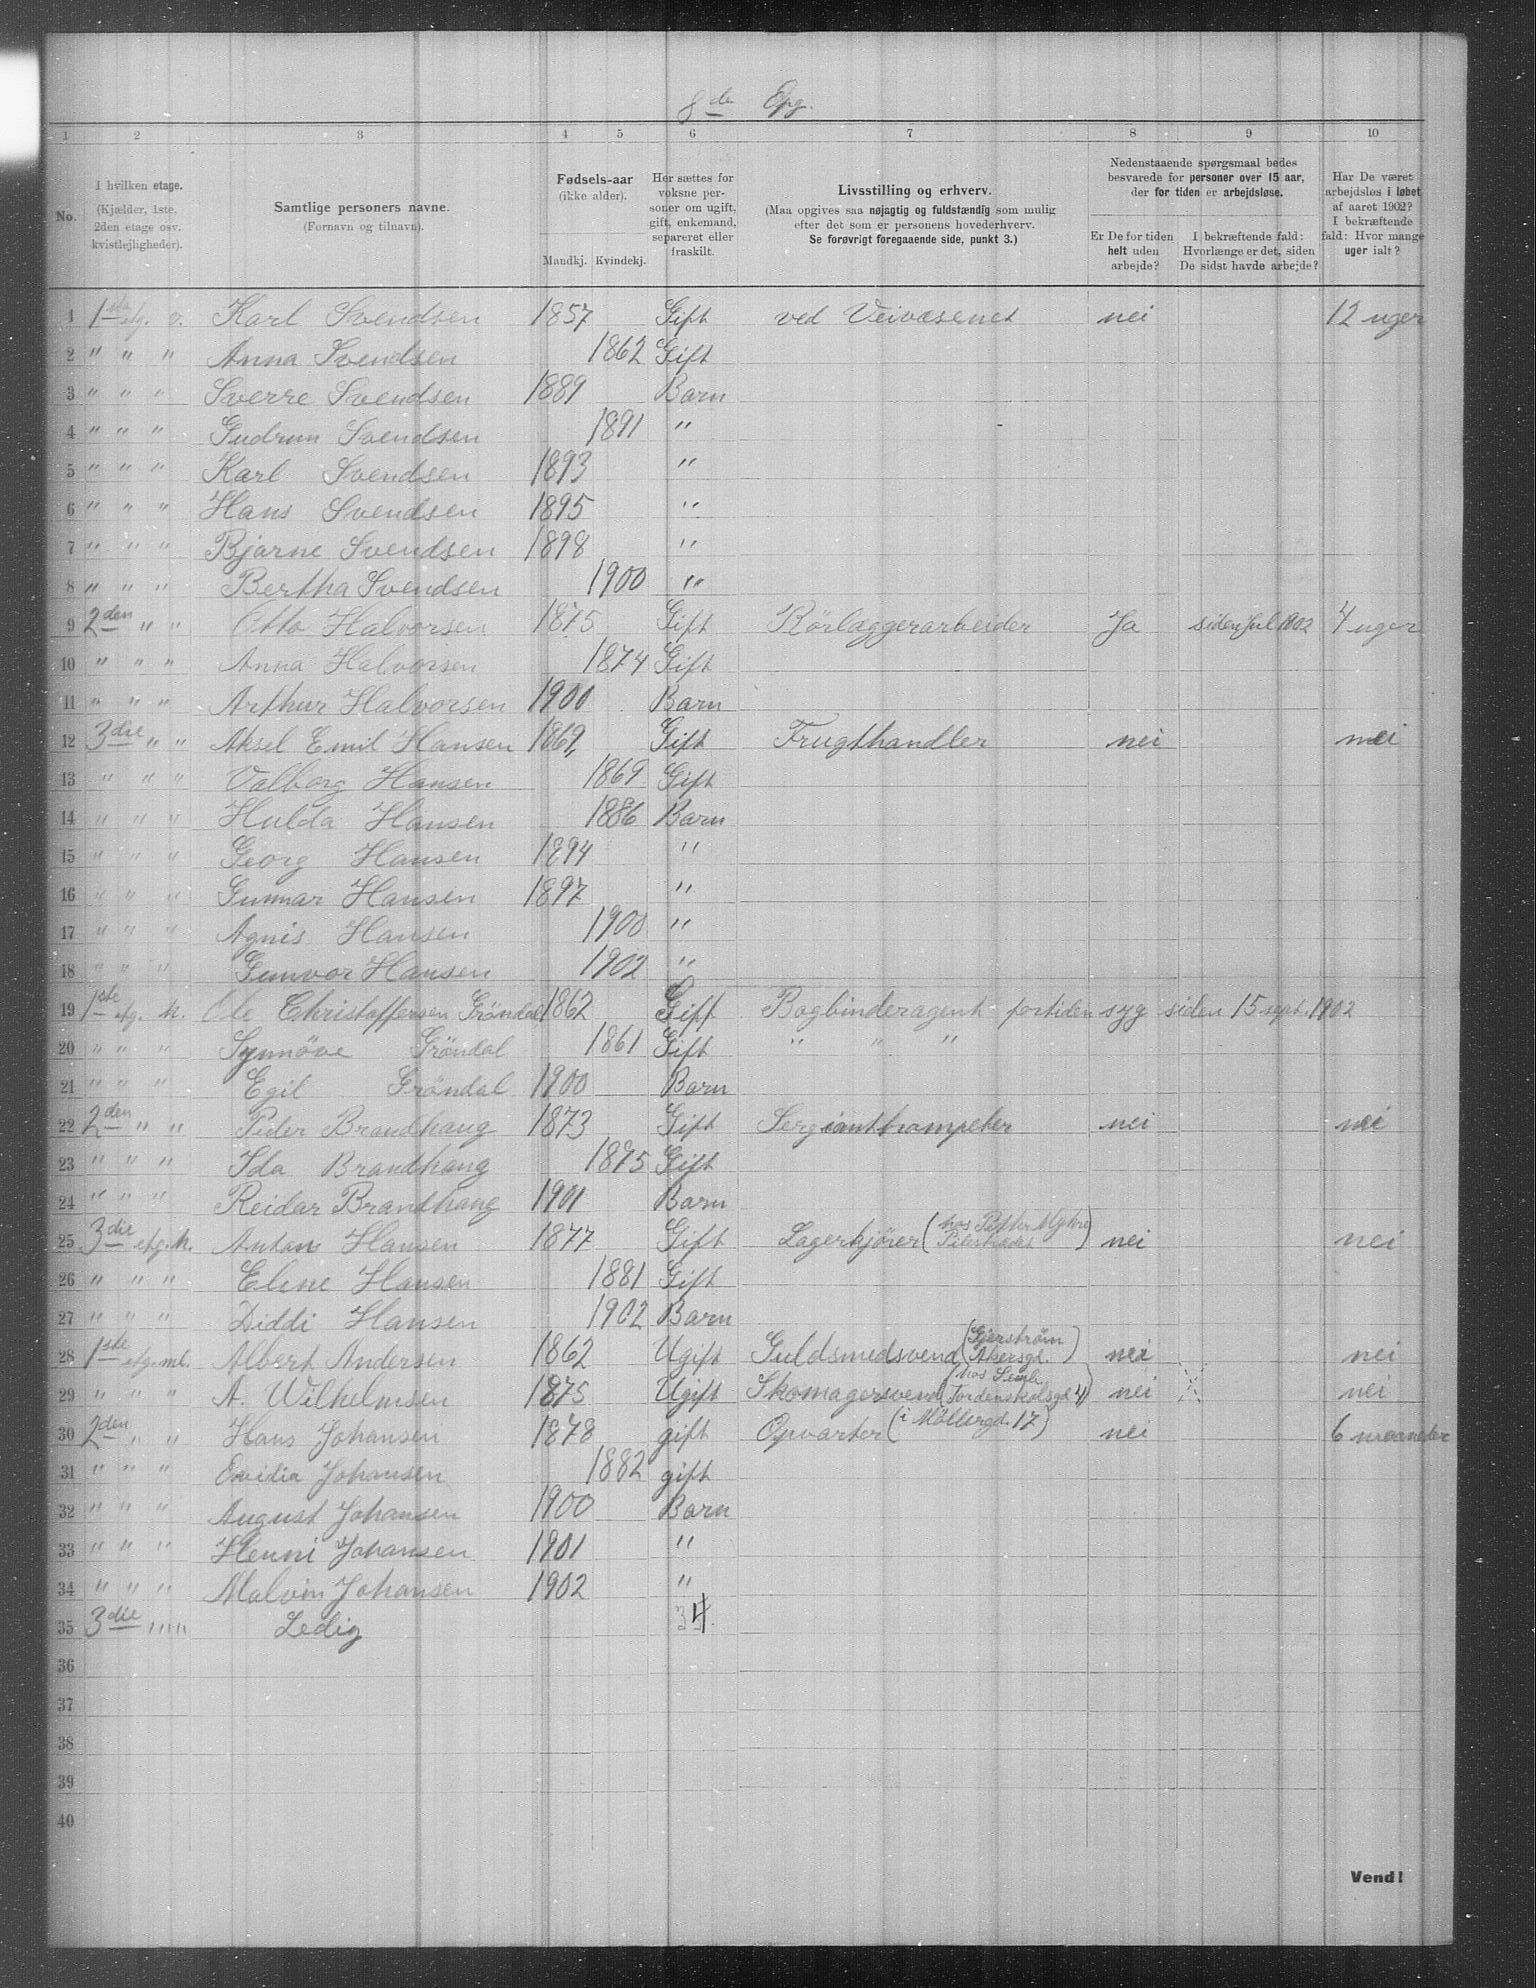 8de Opg.
1 2 3 4 5 6 7 8 9 10
No. I hvilken etage. (Kjælder, 1ste, 2den etage osv. kvistlejligheder). Samtlige personers navne. (Fornavn og tilnavn). Fødsels-aar (ikke alder). Mandkj. Kvindekj. Her sættes for voksne personer om ugift, gift, enkemand, separeret eller fraskilt. Livsstilling og erhverv. (Maa opgives saa nøjagtig og fuldstændig som mulig efter det som er personens hovederhverv. Se forøvrigt foregaaende side, punkt 3.) Nedenstaaende spørgsmaal bedes besvarede for personer over 15 aar, der for tiden er arbejdsløse. Er De for tiden helt uden arbejde? I bekræftende fald: Hvorlænge er det, siden De sidst havde arbejde? Har De været arbejdsløs i løbet af aaret 1902? I bekræftende fald: Hvor mange uger ialt?
1 1ste etg. v. Karl Svendsen 1857 Gift ved Veivæsenet nei 12 uger
2 " " " Anna Svendsen 1862 Gift
3 " " " Sverre Svendsen 1889 Barn
4 " " " Gudrun Svendsen 1891 "
5 " " " Karl Svendsen 1893 "
6 " " " Hans Svendsen 1895 "
7 " " " Bjarne Svendsen 1898 "
8 " " " Bertha Svendsen 1900 "
9 2den " " Otto Halvorsen 1875 Gift Rörlæggerarbeider Ja siden Jul 1902 4 uger
10 " " " Anna Halvorsen 1874 Gift
11 " " " Arthur Halvorsen 1900 Barn
12 3die " " Aksel Emil Hansen 1869 Gift Frugthandler nei nei
13 " " " Valborg Hansen 1869 Gift
14 " " " Hulda Hansen 1886 Barn
15 " " " Georg Hansen 1894 "
16 " " " Gunnar Hansen 1897 "
17 " " " Agnis Hansen 1900 "
18 " " " Gunvor Hansen 1902 "
19 1ste etg. h. Ole Christoffersen Gröndal 1862 Gift Bogbinderagent fortiden syg siden 15 sept. 1902
20 " " " Synnöve Gröndal 1861 Gift " " "
21 " " " Egil Gröndal 1900 Barn
22 2den " " Peder Brandhaug 1873 Gift Sergianttrompeter nei nei
23 " " " Ida Brandhaug 1875 Gift
24 " " " Reidar Brandhaug 1901 Barn
25 3die etg. h. Anton Hansen 1877 Gift Lagerkjörer (hos ) nei nei
26 " " " Eline Hansen 1881 Gift
27 " " " Diddi Hansen 1902 Barn
28 1ste etg. ml. Albert Andersen 1862 Ugift Guldsmedsvend (Gjerström Akersgd.) nei nei
29 " " " A. Wilhelmsen 1875 Ugift Skomagersvend (hos Tordenskolsgd 4) nei nei
30 2den " " Hans Johansen 1878 gift Opvarter (i Möllergd. 17) nei 6 maaneder
31 " " " Johansen 1882 gift
32 " " " August Johansen 1900 Barn
33 " " " Henni Johansen 1901 "
34 " " " Malvin Johansen 1902 "
35 3die " " Ledig 34
36
37
38
39
40
Vend!